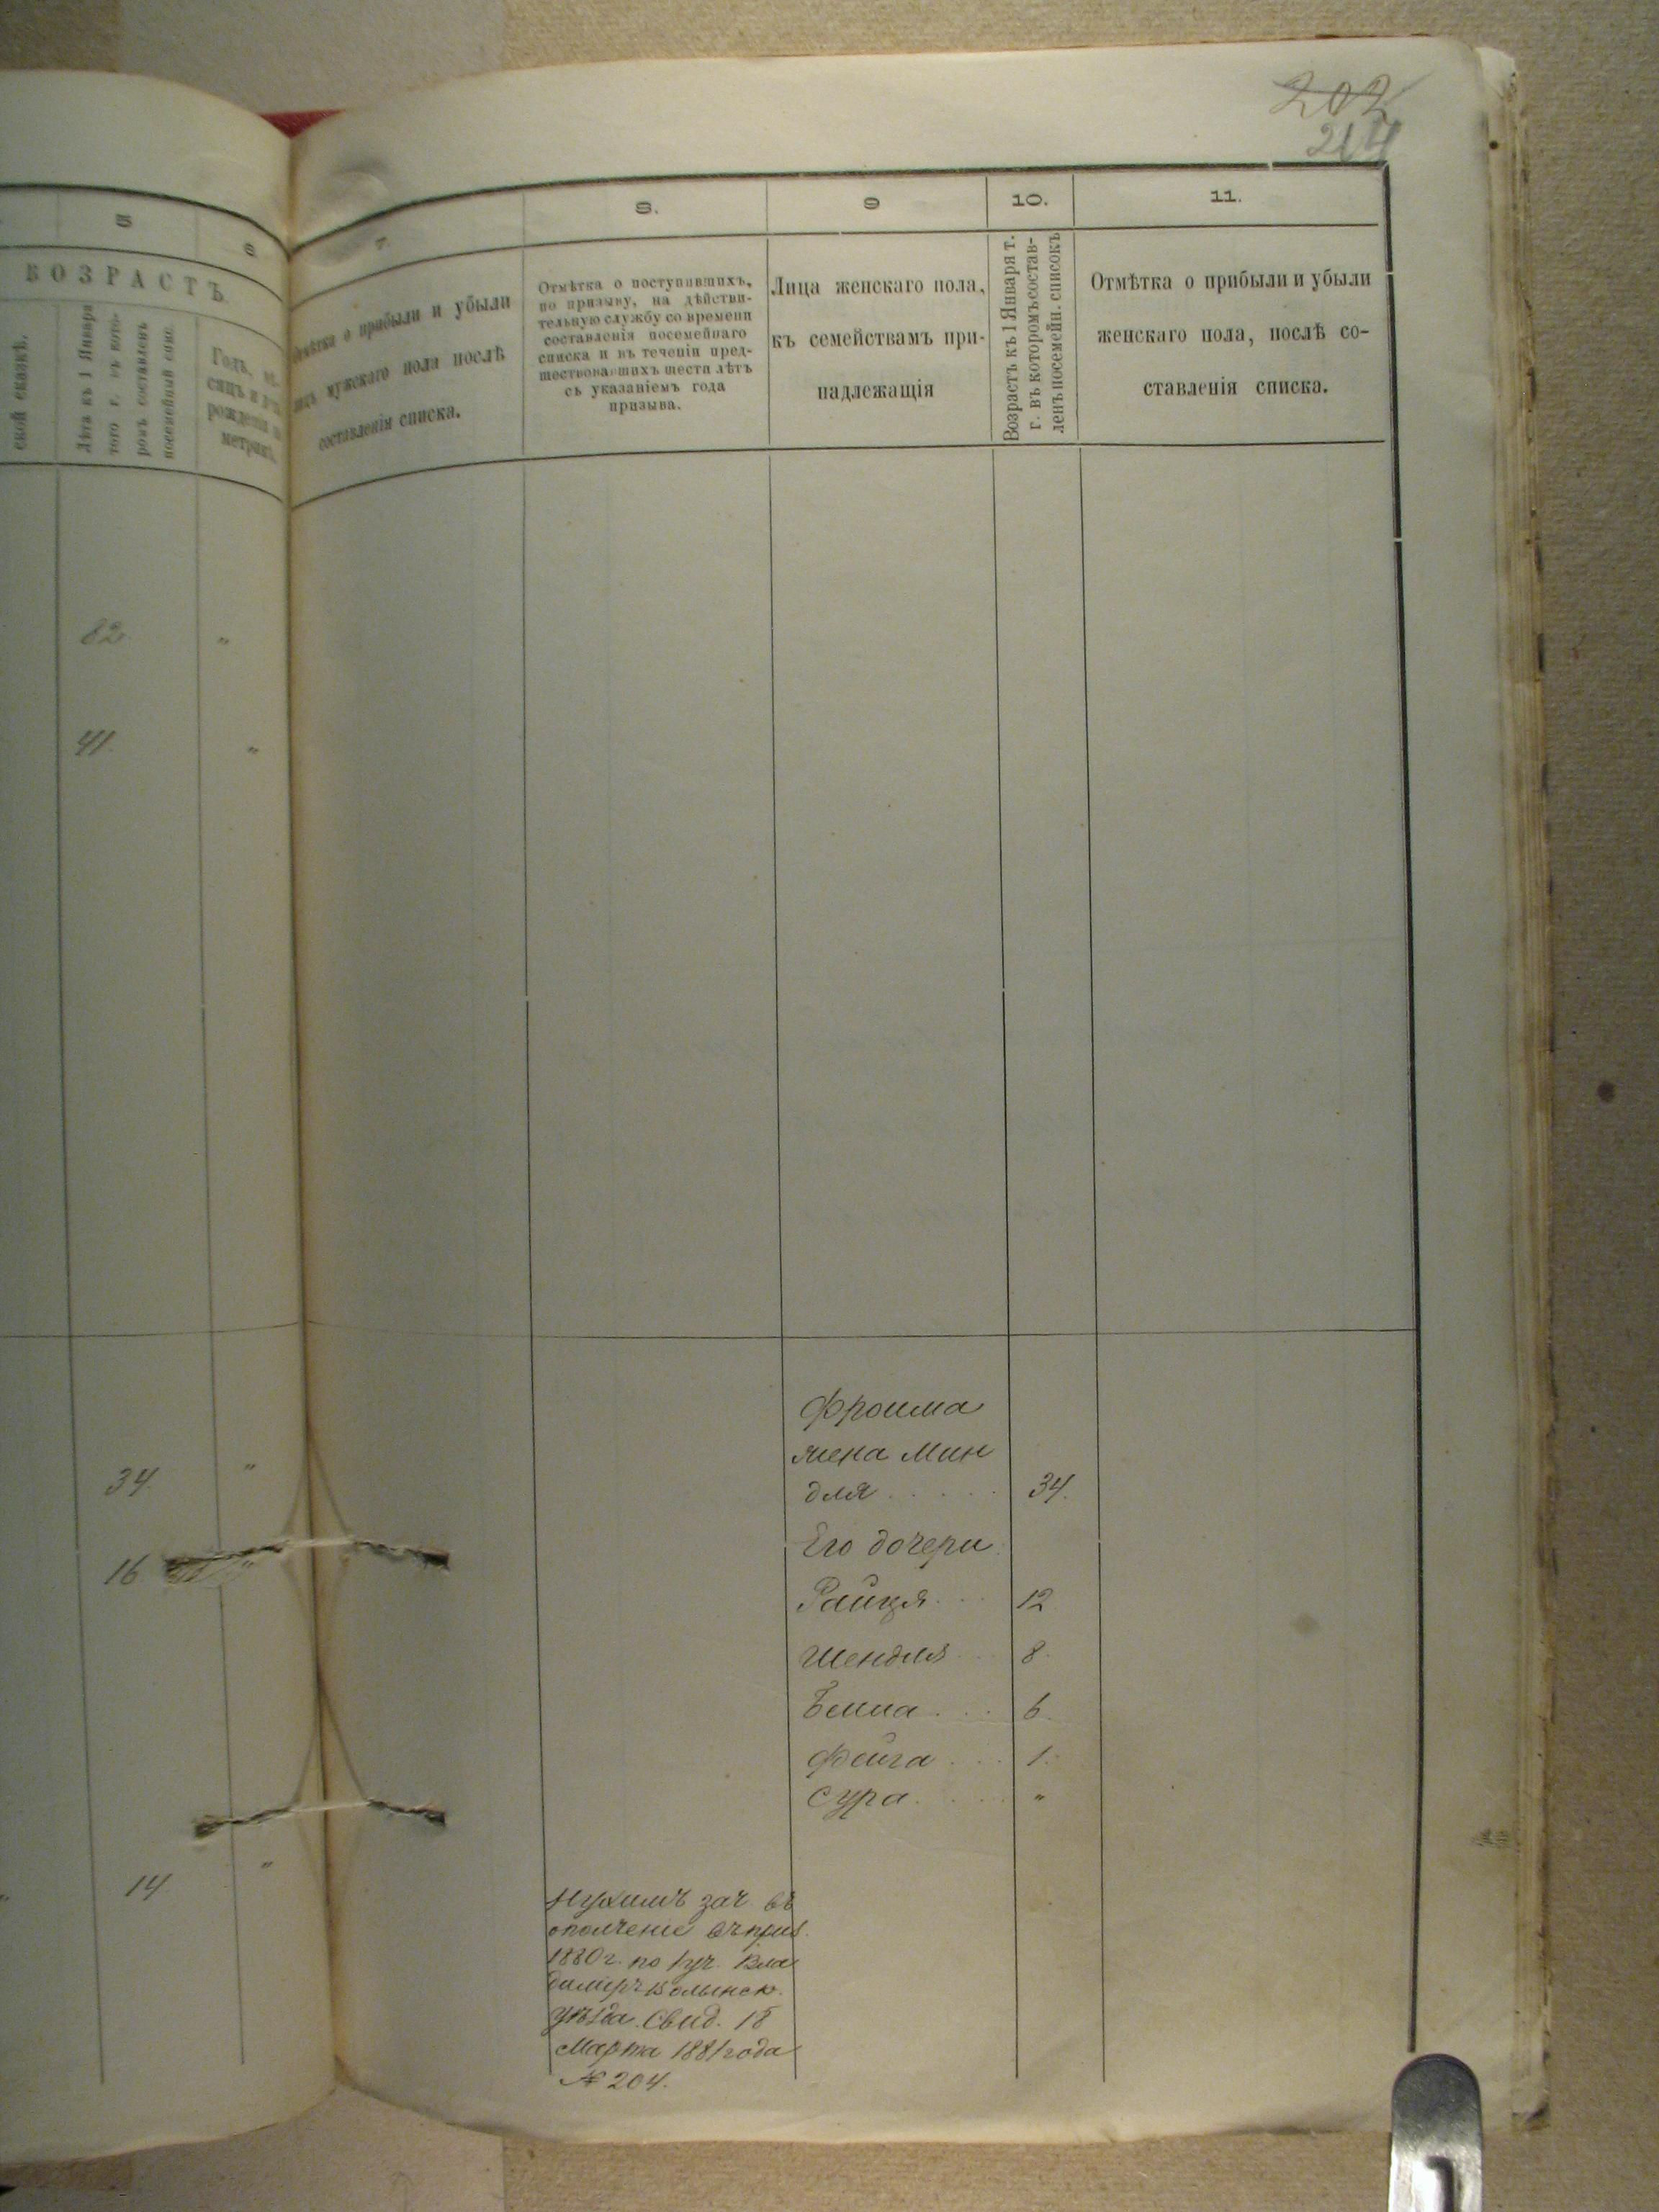 202
214
5
6
ВОЗРАСТЪ
ской сказкѣ.
Лѣта къ 1 Января
того г. въ кото-
ромъ составленъ
посемейный спис.
Годъ, мѣ-
сяцъ и
рожденія
метрик.
82
41.
34
16
14
7.
8.
9
10.
11.
о прибыли и убыли
лицъ мужскаго пола послѣ
составленія списка.
Отмѣтка о поступившихъ,
по призыву, на дѣйстви-
тельную службу со времени
составленія посемейнаго
списка и въ теченіи пред-
шествовавшихъ шести лѣтъ
съ указаніемъ года
призыва.
Лица женскаго пола,
къ семействамъ при-
надлежащія
Возрастъ къ 1 Января т.
г. въ которомъ состав-
ленъ посемейн. списокъ
Отмѣтка о прибыли и убыли
женскаго пола, послѣ со-
ставленія списка.
Фроима
жена Мин
для . . . . . 34.
Его дочери
Райця . . . 12
Шендля . . . 8.
. . . 6.
Фейга . . . 1.
Сура . . . . "
Нухимъ зач. въ
ополченіе въ приз.
1880 г. по 1 уч. Вла
димиръ Волынск.
уѣзда. Свид. 18
Марта 1881 года
№ 204.